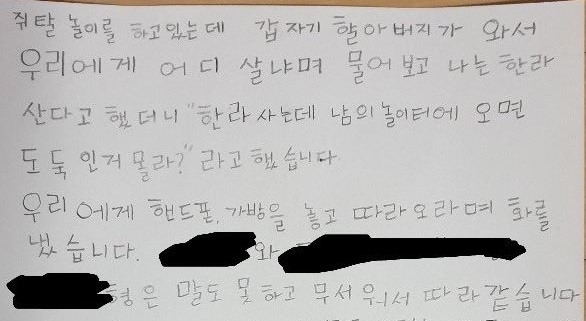 쥐탈 놀이를 하고있는데 갑자기 할아버지가 와서
우리에게 어디 살냐며 물어보고 나는 한라
산다고 했더니 "한라 사는데 남의놀이터에 오면
도둑인거 몰라?" 라고했습니다
우리에게 핸드폰, 가방을 놓고 따라오라며 화를
냈습니다. 와
형은 말도 못하고 무서워서 따라같습니다